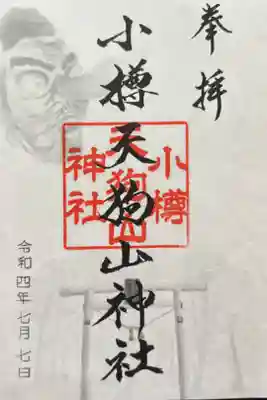 奉拝
小樽天狗山神社
小樽
天狗山
神社
令和四年七月七日